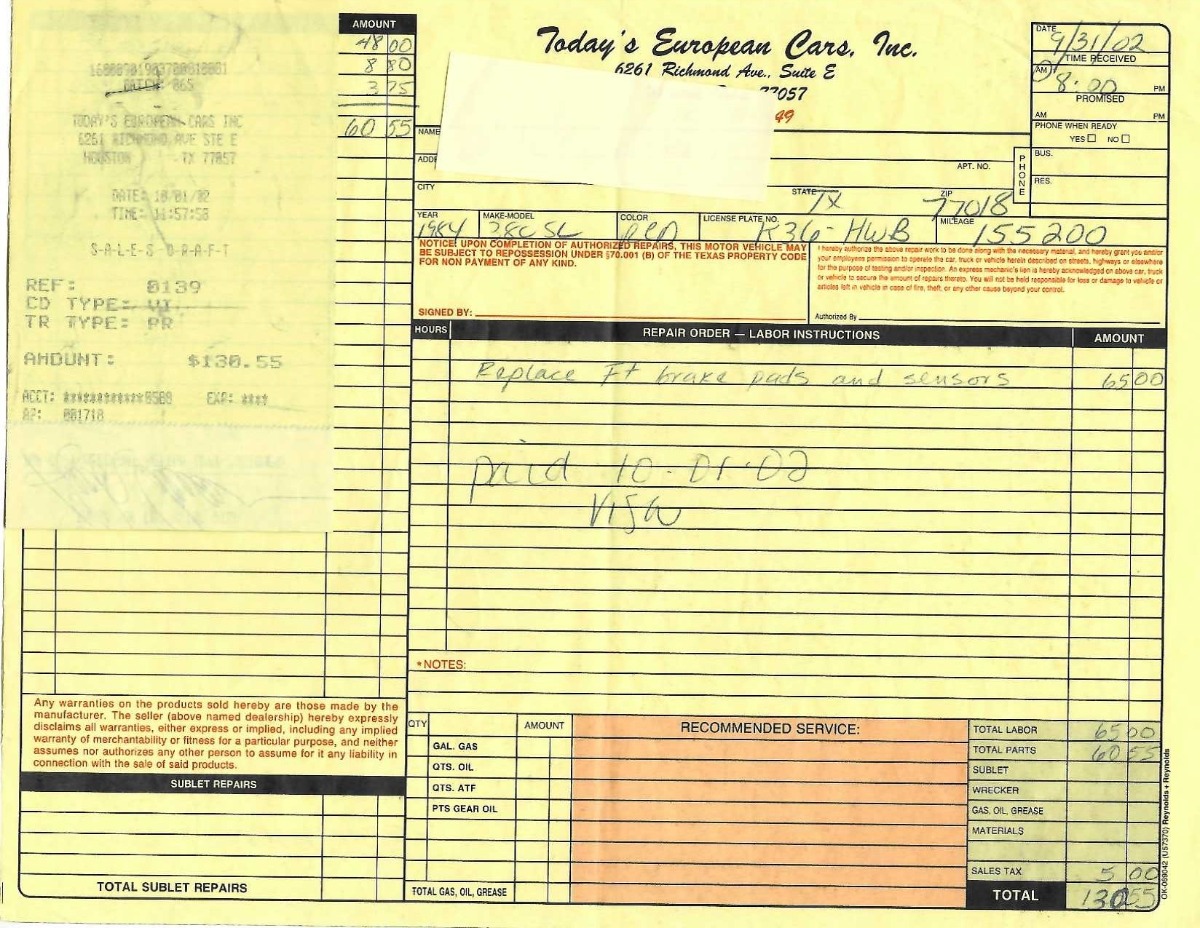 AMOUNT
48 00
8 80
3 75
60 55
BATCH: 065
TODAY'S EUROPEAN CARS INC
6261 RICHMOND AVE STE E
HOUSTON TX 77057
DATE: 10/01/02
TIME: 11:57:58
S-A-L-E-S D-R-A-F-T
REF: 0139
CD TYPE: VI
TR TYPE: PR
AMOUNT: $130.55
ACCT: ************8588 EXP: ****
AP: 001718
Today's European Cars, Inc.
6261 Richmond Ave., Suite E
77057
49
DATE 9/31/02
TIME RECEIVED
AM 8:00 PM
PROMISED
AM PM
PHONE WHEN READY
YES NO
NAME
ADD
APT. NO.
PHONE
BUS.
RES.
CITY
STATE TX
ZIP 77018
YEAR 1984
MAKE-MODEL 380 SL
COLOR RED
LICENSE PLATE NO. K36-HWB
MILEAGE 155200
NOTICE! UPON COMPLETION OF AUTHORIZED REPAIRS, THIS MOTOR VEHICLE MAY
BE SUBJECT TO REPOSSESSION UNDER §70.001 (B) OF THE TEXAS PROPERTY CODE
FOR NON PAYMENT OF ANY KIND.
SIGNED BY:
I hereby authorize the above repair work to be done along with the necessary material, and hereby grant you and/or
your employees permission to operate the car, truck or vehicle herein described on streets, highways or elsewhere
for the purpose of testing and/or inspection. An express mechanic's lien is hereby acknowledged on above car, truck
or vehicle to secure the amount of repairs thereto. You will not be held responsible for loss or damage to vehicle or
articles left in vehicle in case of fire, theft, or any other cause beyond your control.
Authorized By
HOURS REPAIR ORDER — LABOR INSTRUCTIONS AMOUNT
Replace Ft brake pads and sensors 65 00
paid 10-01-02
Visa
*NOTES:
Any warranties on the products sold hereby are those made by the
manufacturer. The seller (above named dealership) hereby expressly
disclaims all warranties, either express or implied, including any implied
warranty of merchantability or fitness for a particular purpose, and neither
assumes nor authorizes any other person to assume for it any liability in
connection with the sale of said products.
SUBLET REPAIRS
TOTAL SUBLET REPAIRS
QTY AMOUNT
GAL. GAS
QTS. OIL
QTS. ATF
PTS GEAR OIL
TOTAL GAS, OIL, GREASE
RECOMMENDED SERVICE:
TOTAL LABOR 65 00
TOTAL PARTS 60 55
SUBLET
WRECKER
GAS, OIL, GREASE
MATERIALS
SALES TAX 5 00
TOTAL 130 55
OK-069042 (U57370) Reynolds + Reynolds